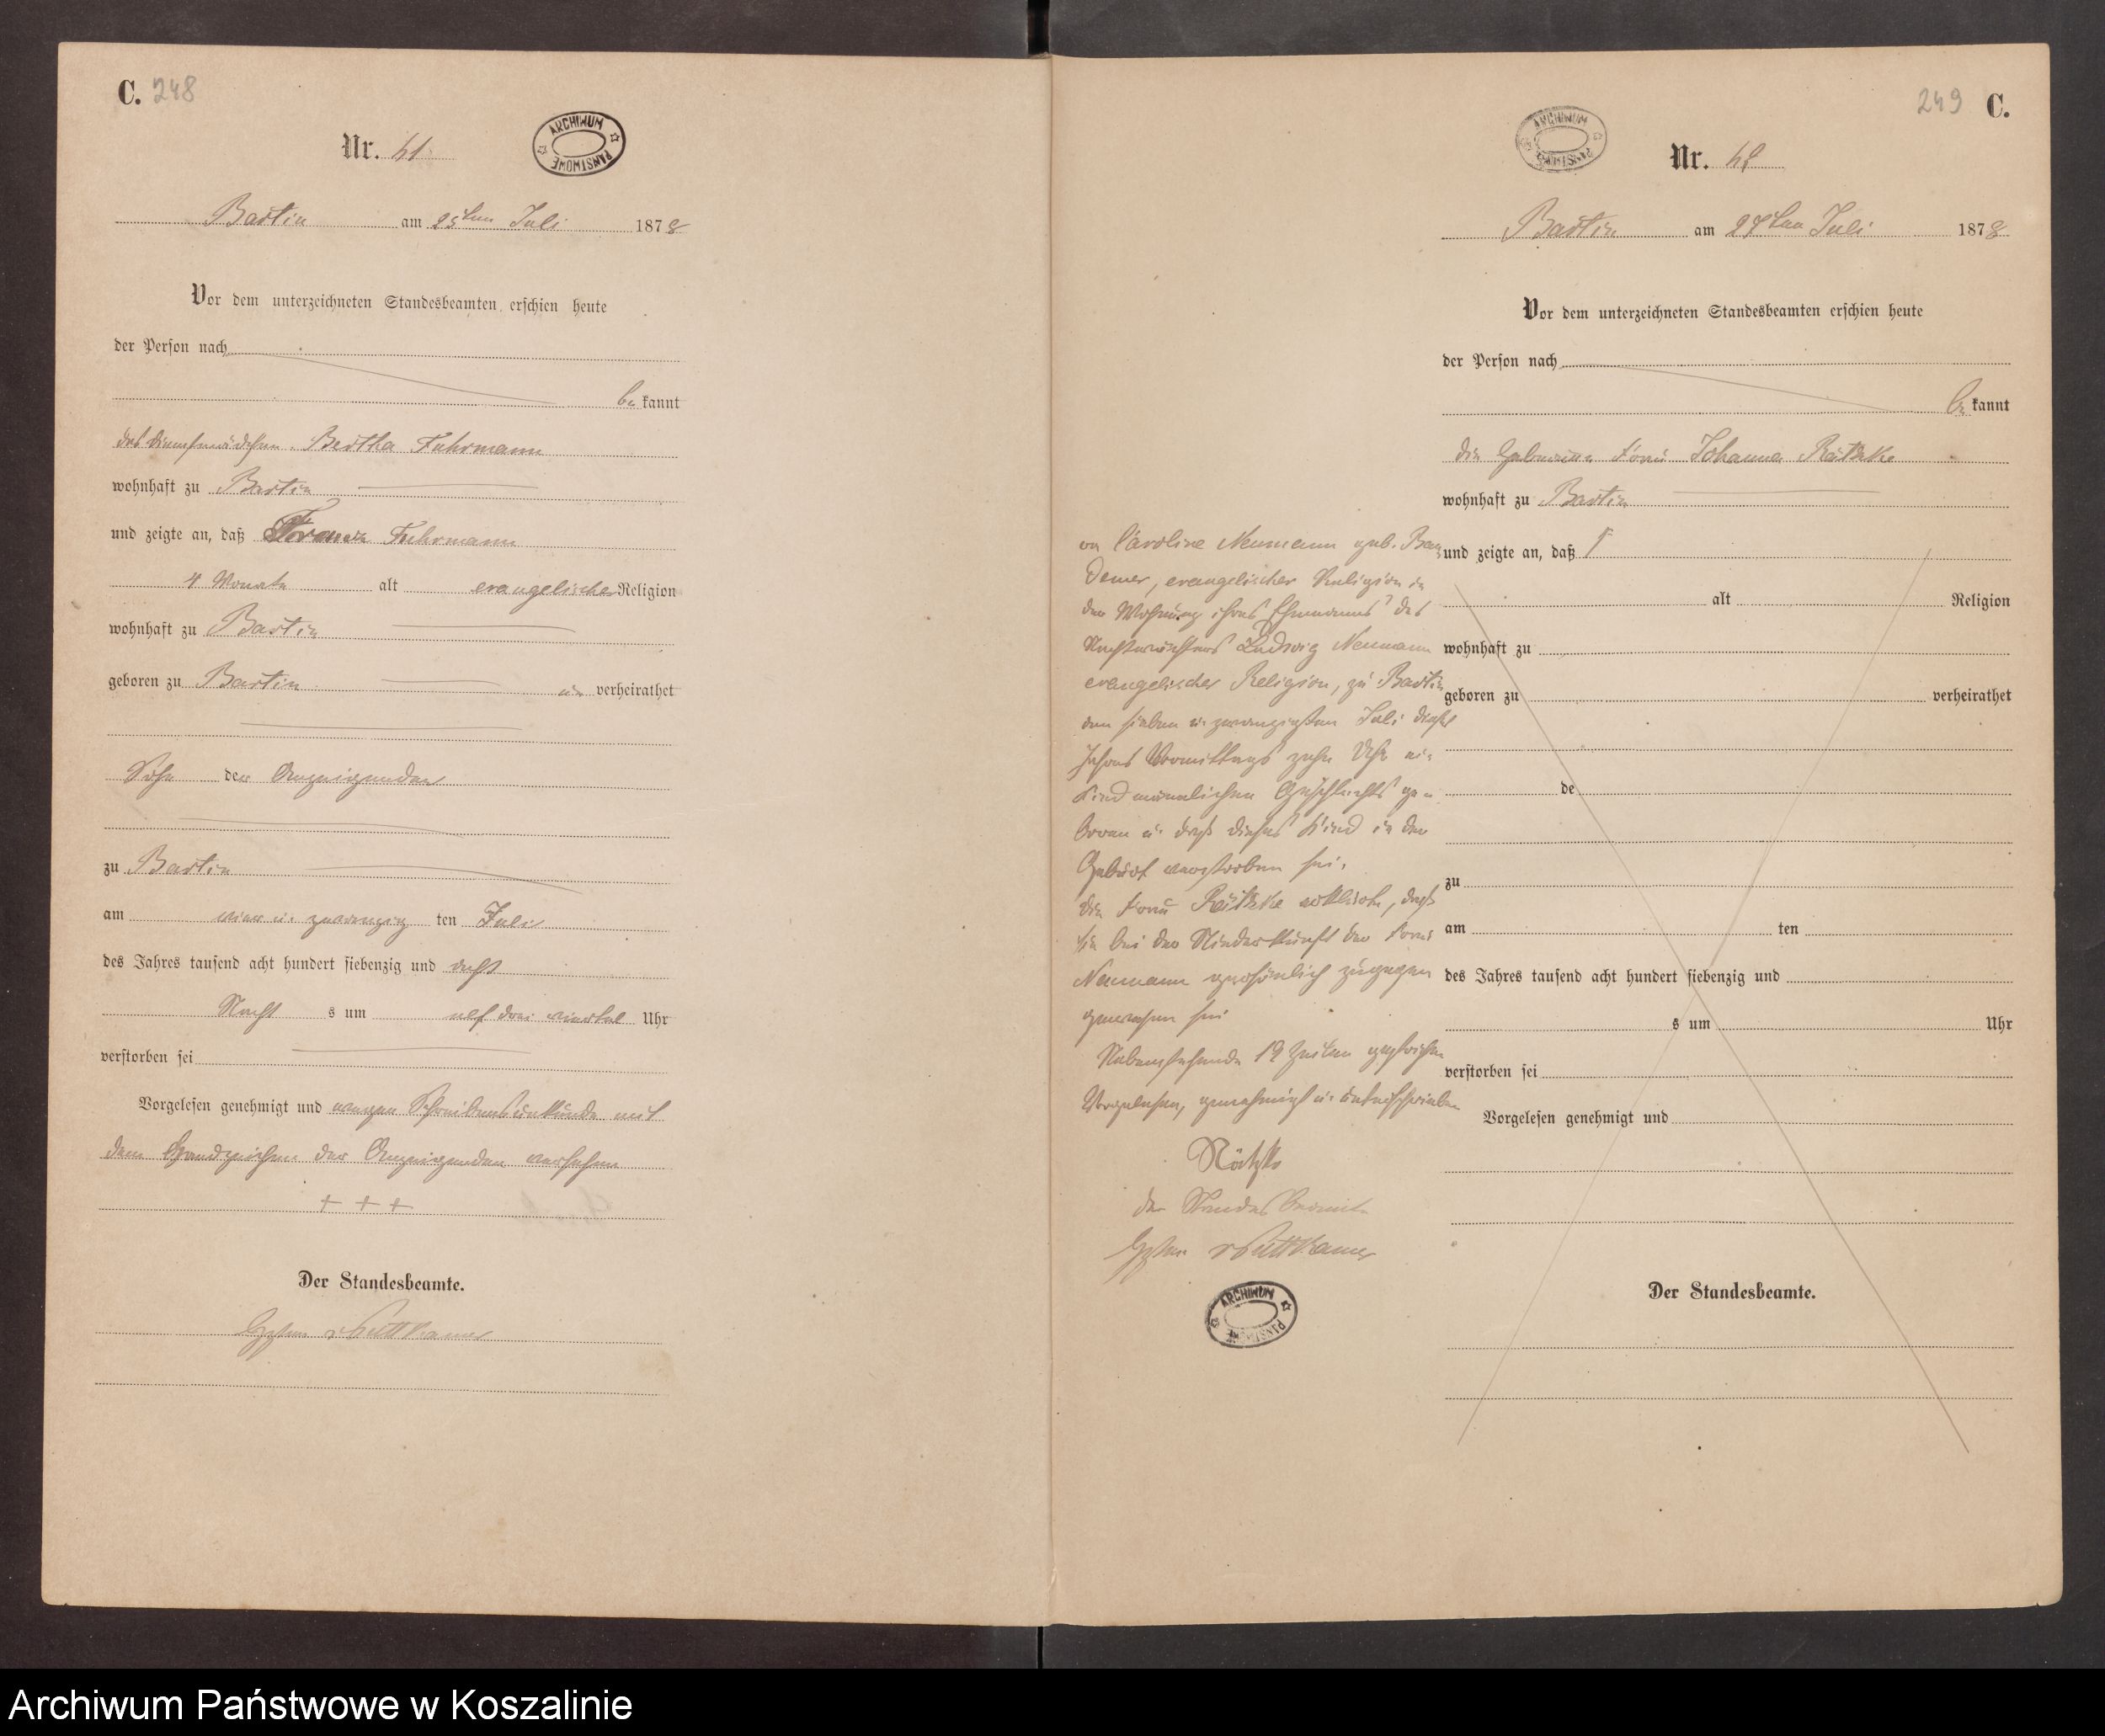 C. 248
Nr. 41.
ARCHIWUM PAŃSTWOWE
Bartin am 25ten Juli 1878
Vor dem unterzeichneten Standesbeamten erschien heute
der Person nach
be kannt
das Dienstmädchen Bertha Fuhrmann
wohnhaft zu Bartin
und zeigte an, daß Franz Fuhrmann
4 Monate alt evangelischer Religion
wohnhaft zu Bartin
geboren zu Bartin un verheirathet
Sohn der Anzeigenden
zu Bartin
am vier u. zwanzig ten Juli
des Jahres tausend acht hundert siebenzig und acht
Nacht s um elf drei viertel Uhr
verstorben sei
Vorgelesen genehmigt und wegen Schreibensunkunde mit
dem Handzeichen der Anzeigenden versehen
+ + +
Der Standesbeamte.
v Puttkamer
249 C.
ARCHIWUM PAŃSTWOWE
Nr. 42
Bartin am 27ten Juli 1878
Vor dem unterzeichneten Standesbeamten erschien heute
der Person nach
be kannt
die Hebamme Frau Johanna Rätzke
wohnhaft zu Bartin
und zeigte an, daß
alt Religion
wohnhaft zu
geboren zu verheirathet
de
zu
am ten
des Jahres tausend acht hundert siebenzig und
s um Uhr
verstorben sei
Vorgelesen genehmigt und
Der Standesbeamte.
Caroline Neumann geb.
demer, evangelischer Religion in
der Wohnung ihres Ehemanns des
Nachtwächters Ludwig Neumann
evangelischer Religion, zu Bartin
am sieben u. zwanzigsten Juli dieses
Jahres Vormittags zehn Uhr ein
Kind männlichen Geschlechts ge=
boren u. daß dieses Kind in der
Geburt verstorben sei.
Die Frau Rätzke erklärte, daß
sie bei der Niederkunft der Frau
Neumann persönlich zugegen
gewesen sei
Nebenstehende 19 Zeilen gestrichen
Vorgelesen, genehmigt u. unterschrieben
Rätzke
der Standesbeamte
v Puttkamer
ARCHIWUM PAŃSTWOWE
Archiwum Państwowe w Koszalinie